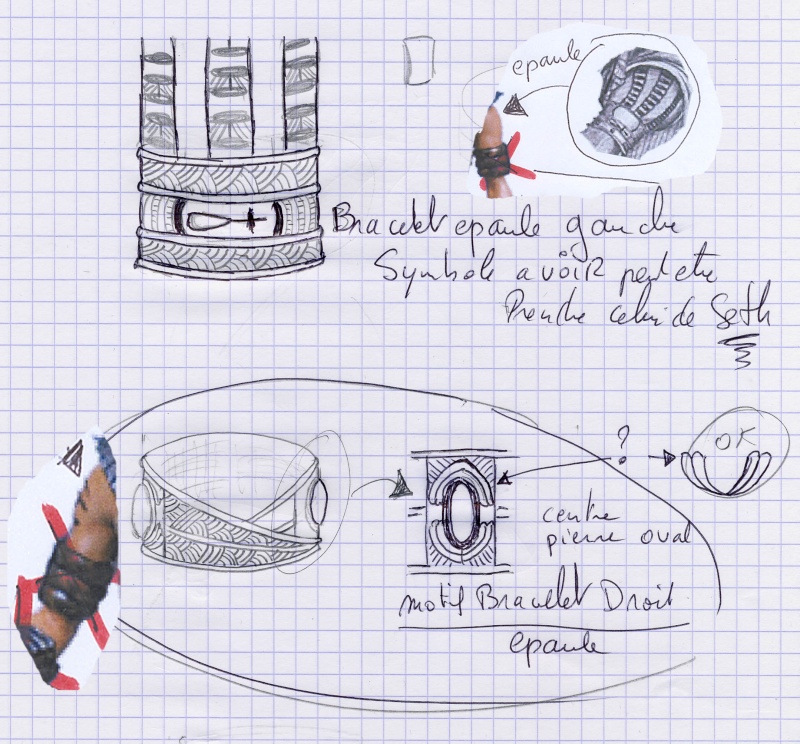 epaule
Bracelet epaule gauche
Symbole a vOiR peut etre
Prendre celui de Seth
?
OK
centre
pierre oval
motif Bracelet Droit
epaule